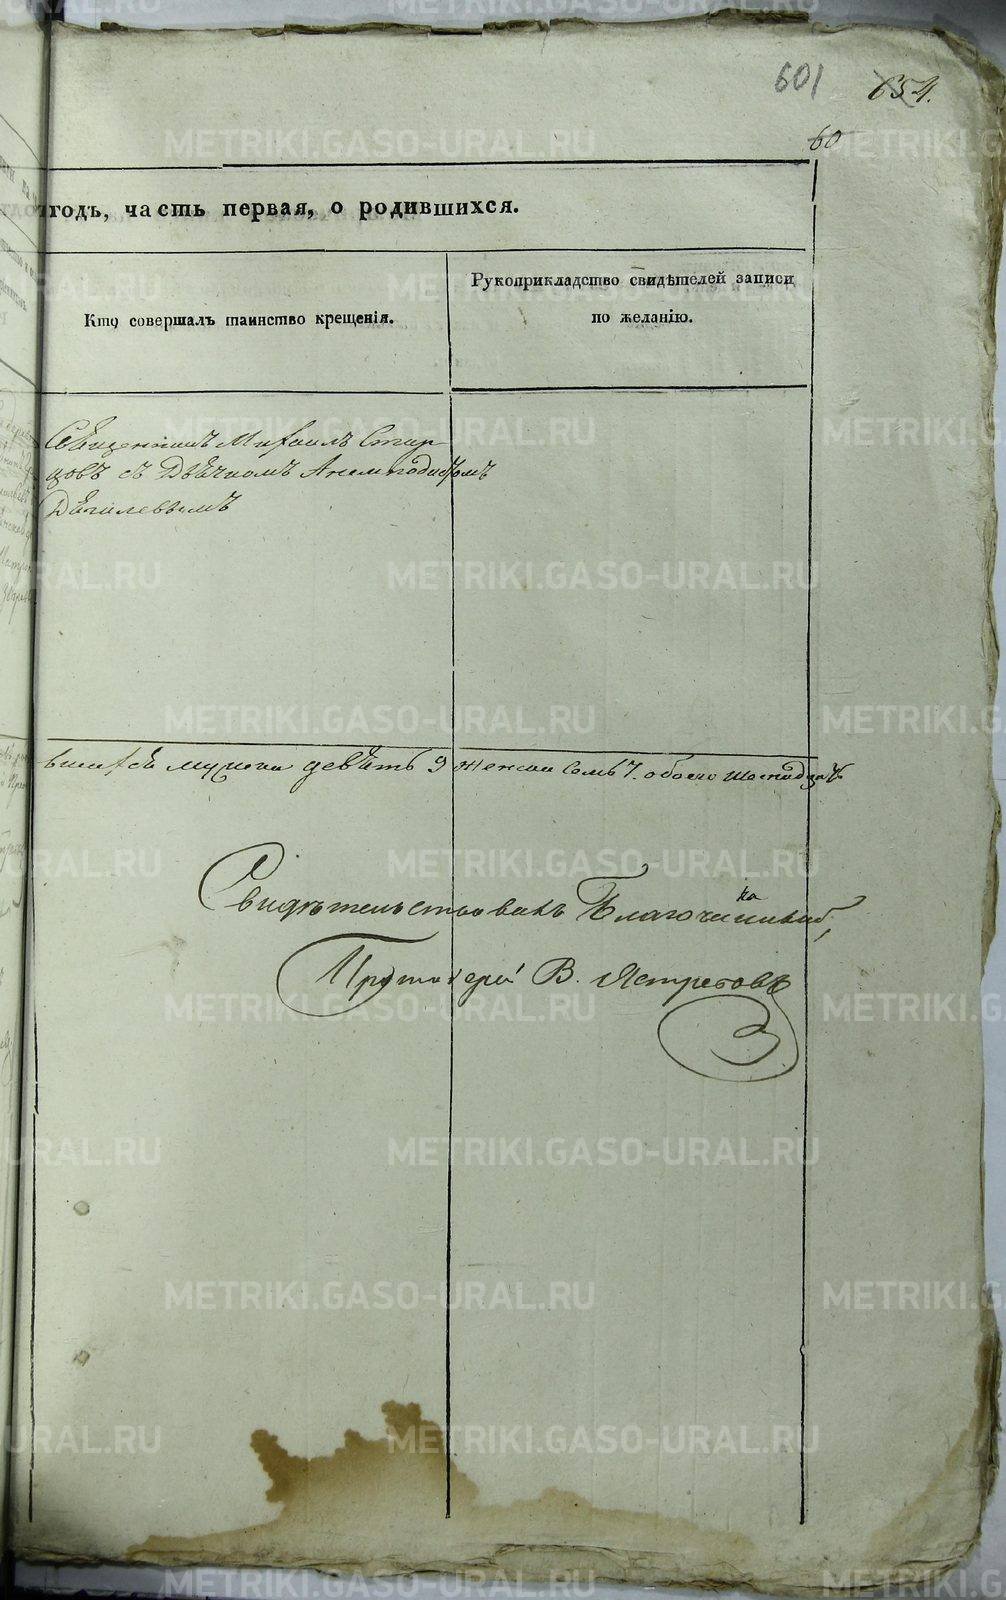 601 654.
60
годъ, часть первая, о родившихся.
Кто совершалъ таинство крещенія.
Рукоприкладство свидѣтелей записи
по желанію.
Священникъ Михаилъ Стар
цовъ съ Дьячкомъ Анемподистомъ
Дягилевымъ
вшихся мужска девять 9 женска семь 7. обоего шеснадцать
Свидѣтельствовалъ Благочинный,
Протоіерей В. Ястребовъ
METRIKI.GASO-URAL.RU